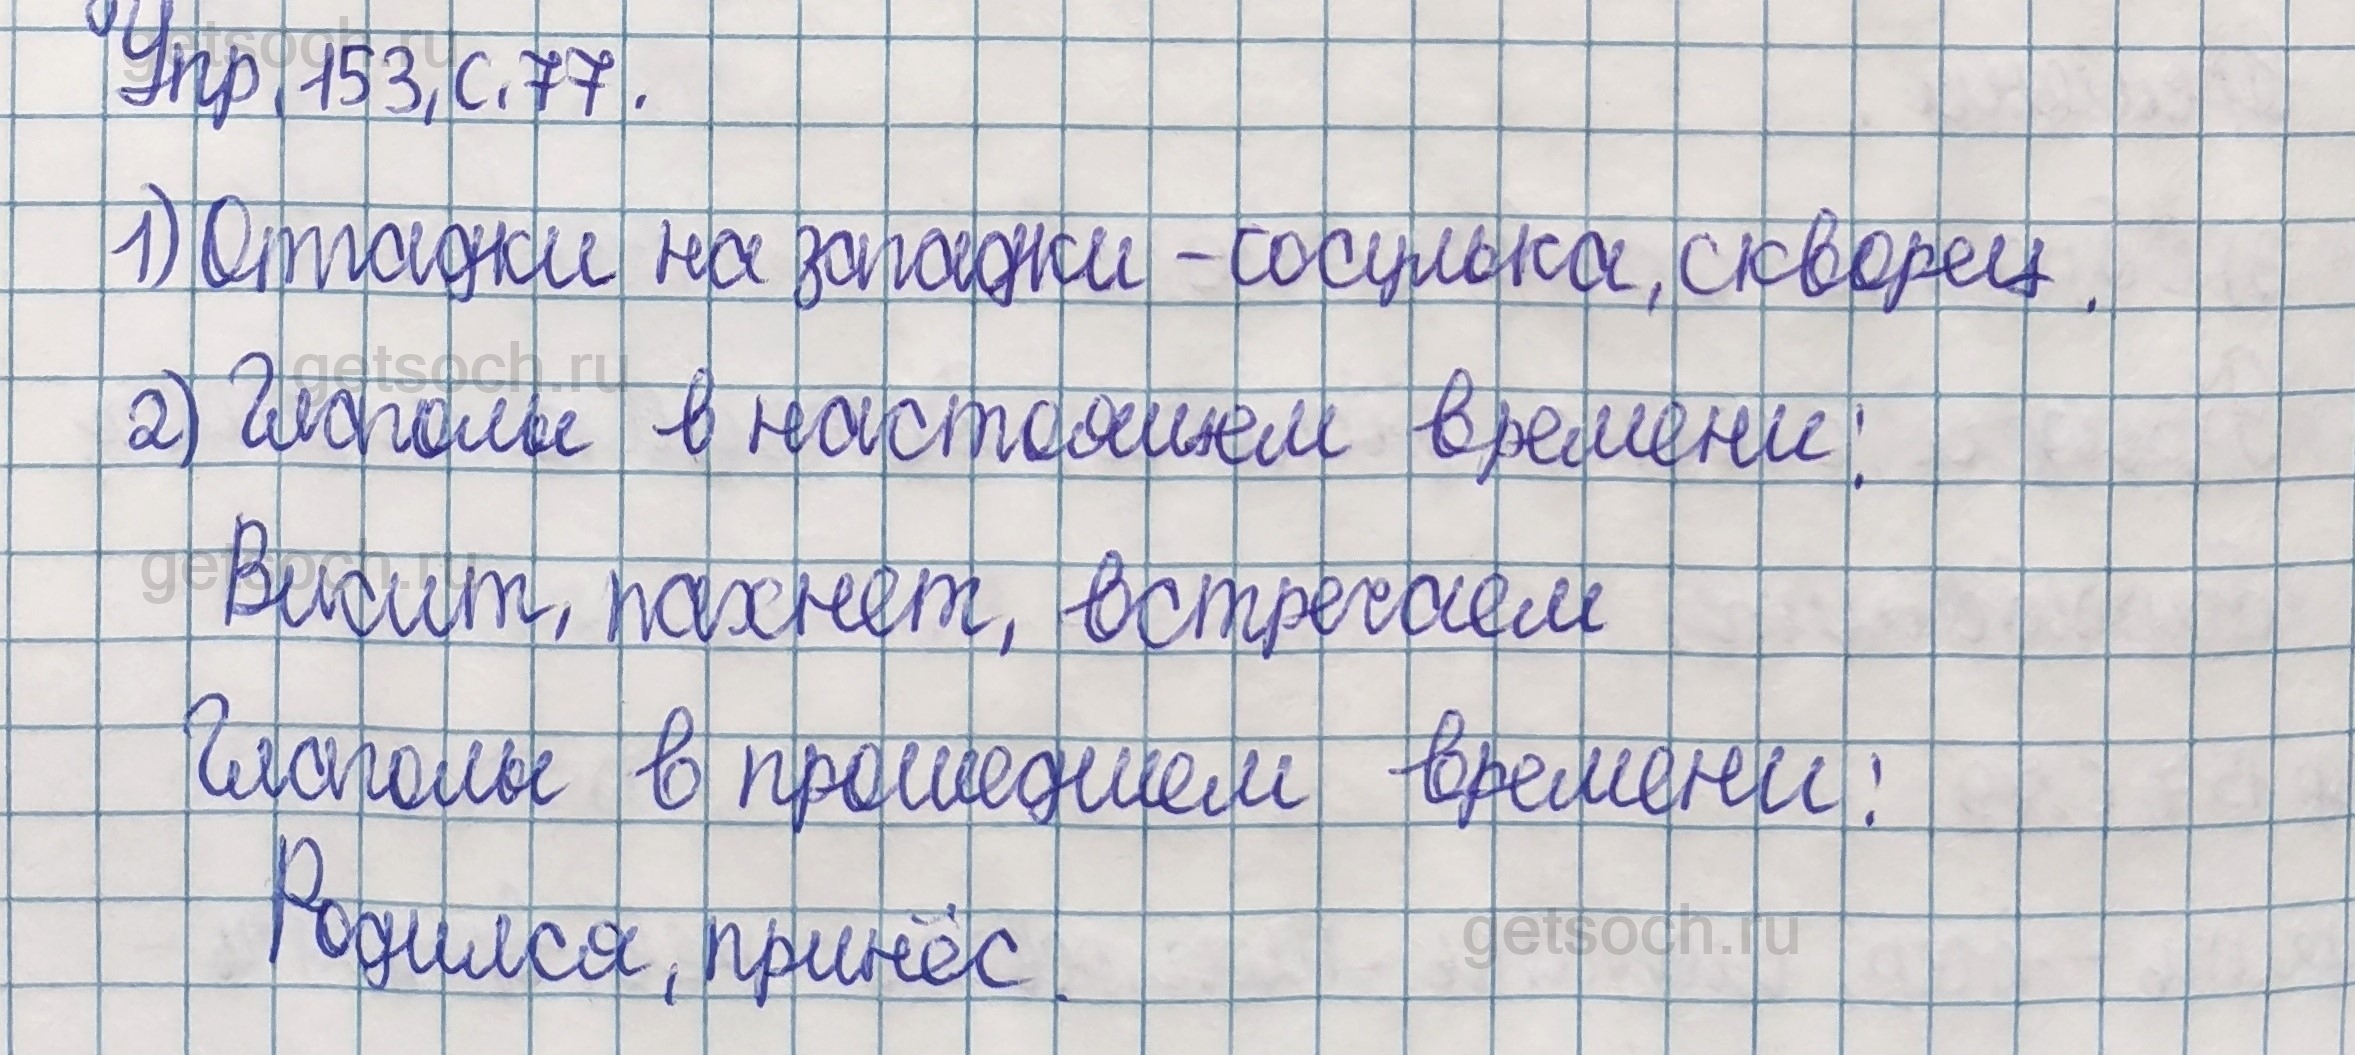 Упр. 153, с. 77.
getsoch.ru
1) Отгадки на загадки - сосулька, скворец.
getsoch.ru
2) Глаголы в настоящем времени:
getsoch.ru
Висит, пахнет, встречаем
Глаголы в прошедшем времени:
Родился, принёс.
getsoch.ru